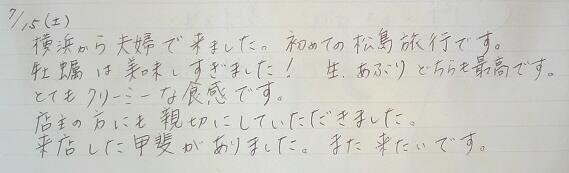 7/15(土)
横浜から夫婦で来ました。初めての松島旅行です。
牡蠣は美味しすぎました! 生、あぶりどちらも最高です。
とてもクリーミーな食感です。
店主の方にも親切にしていただきました。
来店した甲斐がありました。また来たいです。